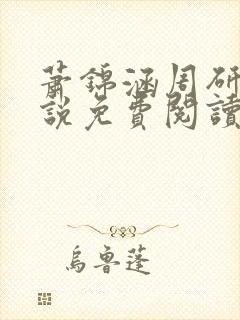 蕭錦涵周研
說免費閱讀
烏魯蓬